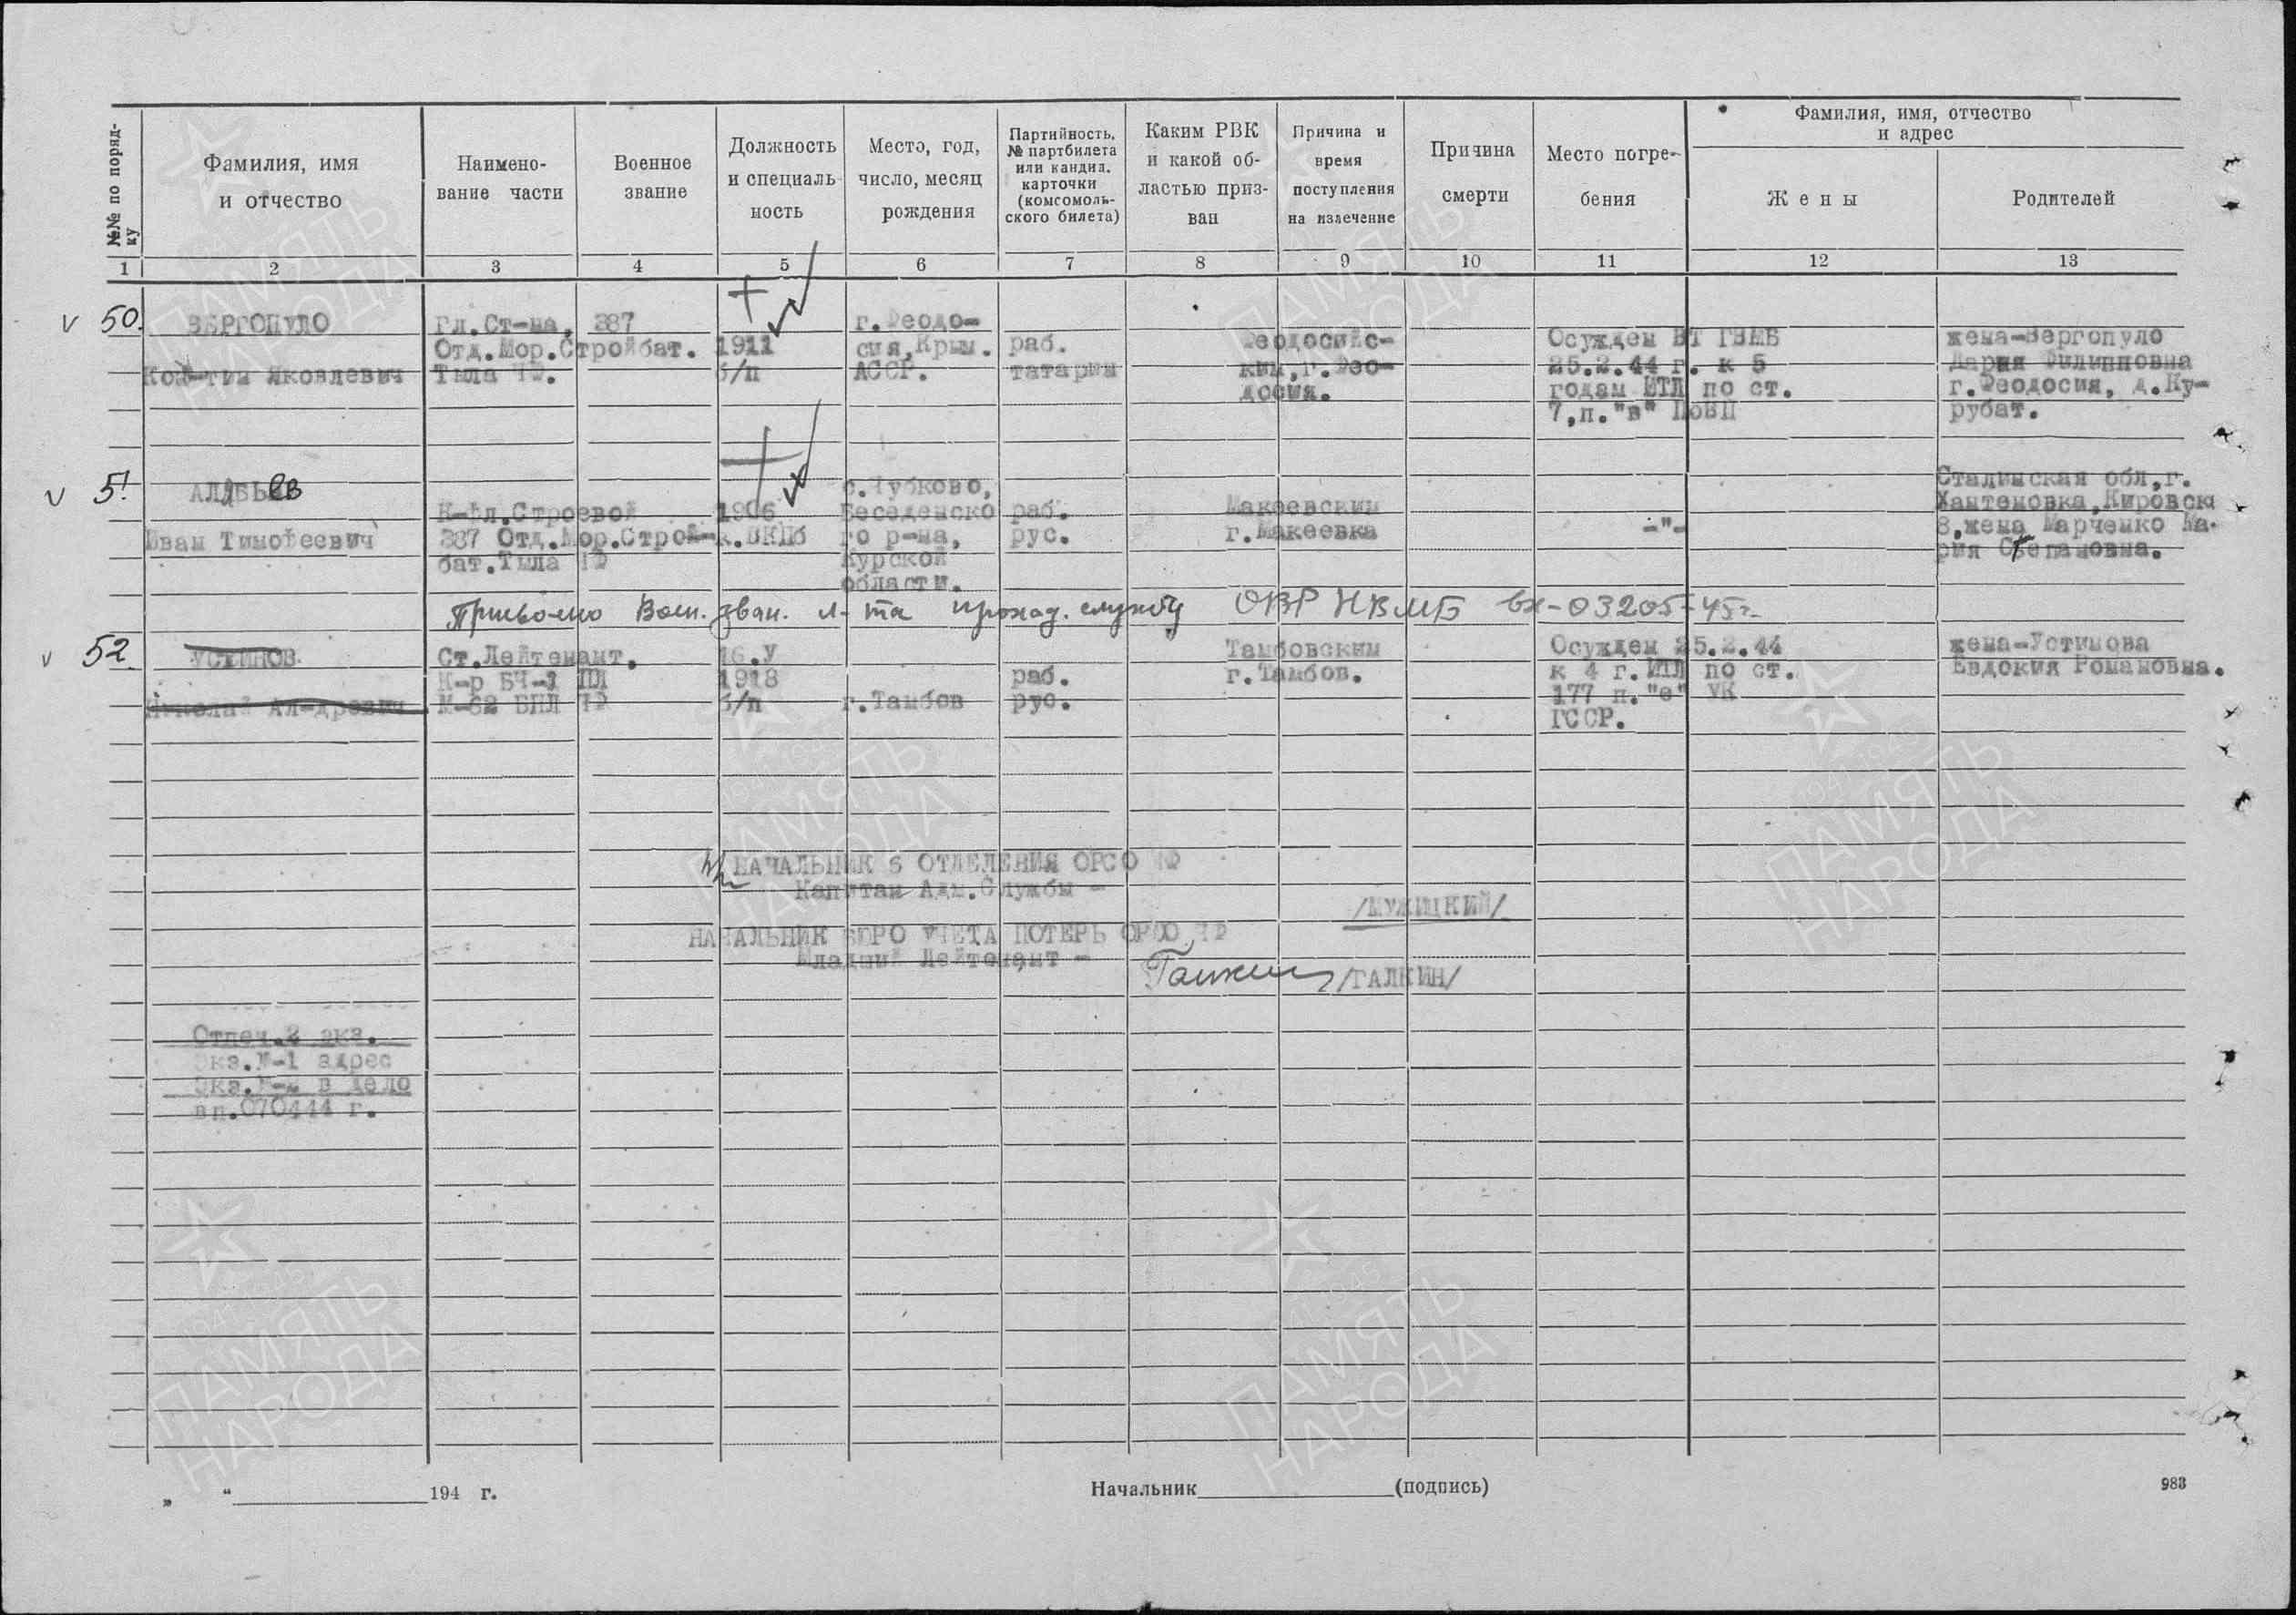 №№ по поряд-
ку
Фамилия, имя
и отчество
Наимено-
вание части
Военное
звание
Должность
и специаль-
ность
Место, год,
число, месяц
рождения
Партийность,
№ партбилета
или кандид.
карточки
(комсомоль-
ского билета)
Каким РВК
и какой об-
ластью приз-
ван
Причина и
время
поступления
на излечение
Причина
смерти
Место погре-
бения
Фамилия, имя, отчество
и адрес
Жены
Родителей
1 2 3 4 5 6 7 8 9 10 11 12 13
v 50.
ВЕРГОПУЛО
Яковлевич
Гл.Ст-на, 387
Отд.Мор.Стройбат.
Тыла ЧФ.
1911
б/п
г.Феодо-
сия,Крым.
АССР.
раб.
татарин
Феодосийс-
ким,г.Фео-
досия.
Осужден ВТ ГВМБ
25.2.44 г. к 5
годам ИТЛ по ст.
7,п."в" ПоВП
жена-Вергопуло
Дария Филипповна
г.Феодосия, д.Ку-
рубат.
v 51
Иван Тимофеевич
К-вл.Строевой
387 Отд.Мор.Строй-
бат.Тыла ЧФ
1906
к.ВКПб
с.Чубково,
Беседенско
го р-на,
Курской
области.
раб.
рус.
Макеевским
г.Макеевка
-"-
Сталинская обл,г.
Хантеновка,Кировская
8,жена Марченко Ма-
рия Степановна.
Присвоено Воен. зван. л-та проход. службу ОВР НВМБ вх-03205-45г.
v 52
УСТИНОВ
Николай Ал-дрович
Ст.Лейтенант.
К-р БЧ-1 ПЛ
М-62 БПЛ ЧФ
16.У
1918
б/п
г.Тамбов
раб.
рус.
Тамбовским
г.Тамбов.
Осужден 25.2.44
к 4 г. ИТЛ по ст.
177 п."е" УК
ГССР.
жена-Устинова
Евдокия Романовна.
НАЧАЛЬНИК 6 ОТДЕЛЕНИЯ ОРСО ЧФ
Капитан Адм.Службы -
/МУЖИЦКИЙ/
НАЧАЛЬНИК БЮРО УЧЕТА ПОТЕРЬ ОРСО ЧФ
Младший Лейтенант -
Галкин /ГАЛКИН/
Отпеч.2 экз.
Экз.№-1 адрес
Экз.№-2 в дело
вп.070444 г.
„ “ 194 г.
Начальник (подпись)
983
1941-1945
ПАМЯТЬ
НАРОДА